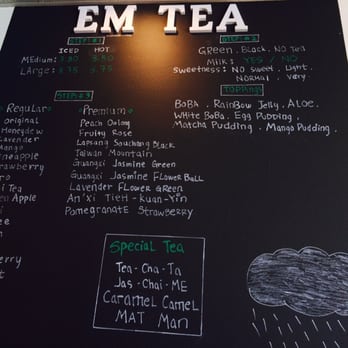 EM TEA
STEP #1
ICED HOT
Medium: 3.50 3.50
LARge: 3.75 3.75
STEP #2
Green. Black. No Tea
Milk: YES / NO
Sweetness: No sweet. Light.
Normal. Very
STEP #3
Regular
original
Honeydew
Lavender
Mango
Pineapple
Strawberry
Premium
Peach Oolong
Fruity Rose
Lapsang Souchong Black
Taiwan Mountain
Guangxi Jasmine Green
Guangxi Jasmine Flower Ball
Lavender Flower Green
An'xi Tieh-kuan-Yin
Pomegranate Strawberry
Toppings
BoBa. Rainbow Jelly. Aloe.
White BoBa. Egg Pudding.
Matcha Pudding. Mango Pudding.
Special Tea
Tea-Cha-Ta
Jas-Chai-ME
Caramel Camel
MAT Man